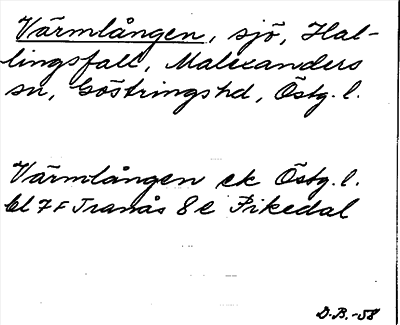 Värmlången, sjö, Hal-
lingsfall, Malexanders
sn, Göstringshd, Östg. l.
Värmlången ek Östg. l.
bl 7F Tranås 8e Fikedal
D.B.-58